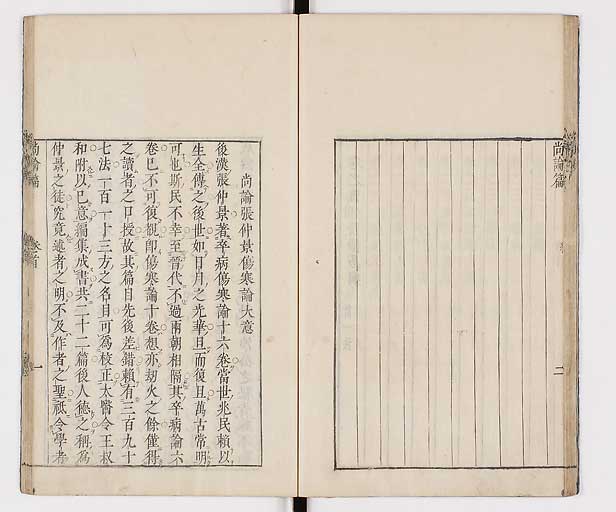 尚論篇
二
尚論張仲景傷寒論大意
後漢張仲景著卒病傷寒論十六卷當世兆民賴以
生全傳之後世如日月之光華旦而復旦萬古常明
可也斯民不幸至晉代不過兩朝相隔其卒病論六
卷已不可復覩即傷寒論十卷想亦劫火之餘僅得
之讀者之口授故其篇目先後差錯賴有三百九十
七法一百一十三方之名目可為校正太醫令王叔
和附以己意編集成書共二十二篇後人德之稱為
仲景之徒究竟述者之明不及作者之聖祗令學者
尚論篇
卷首
一